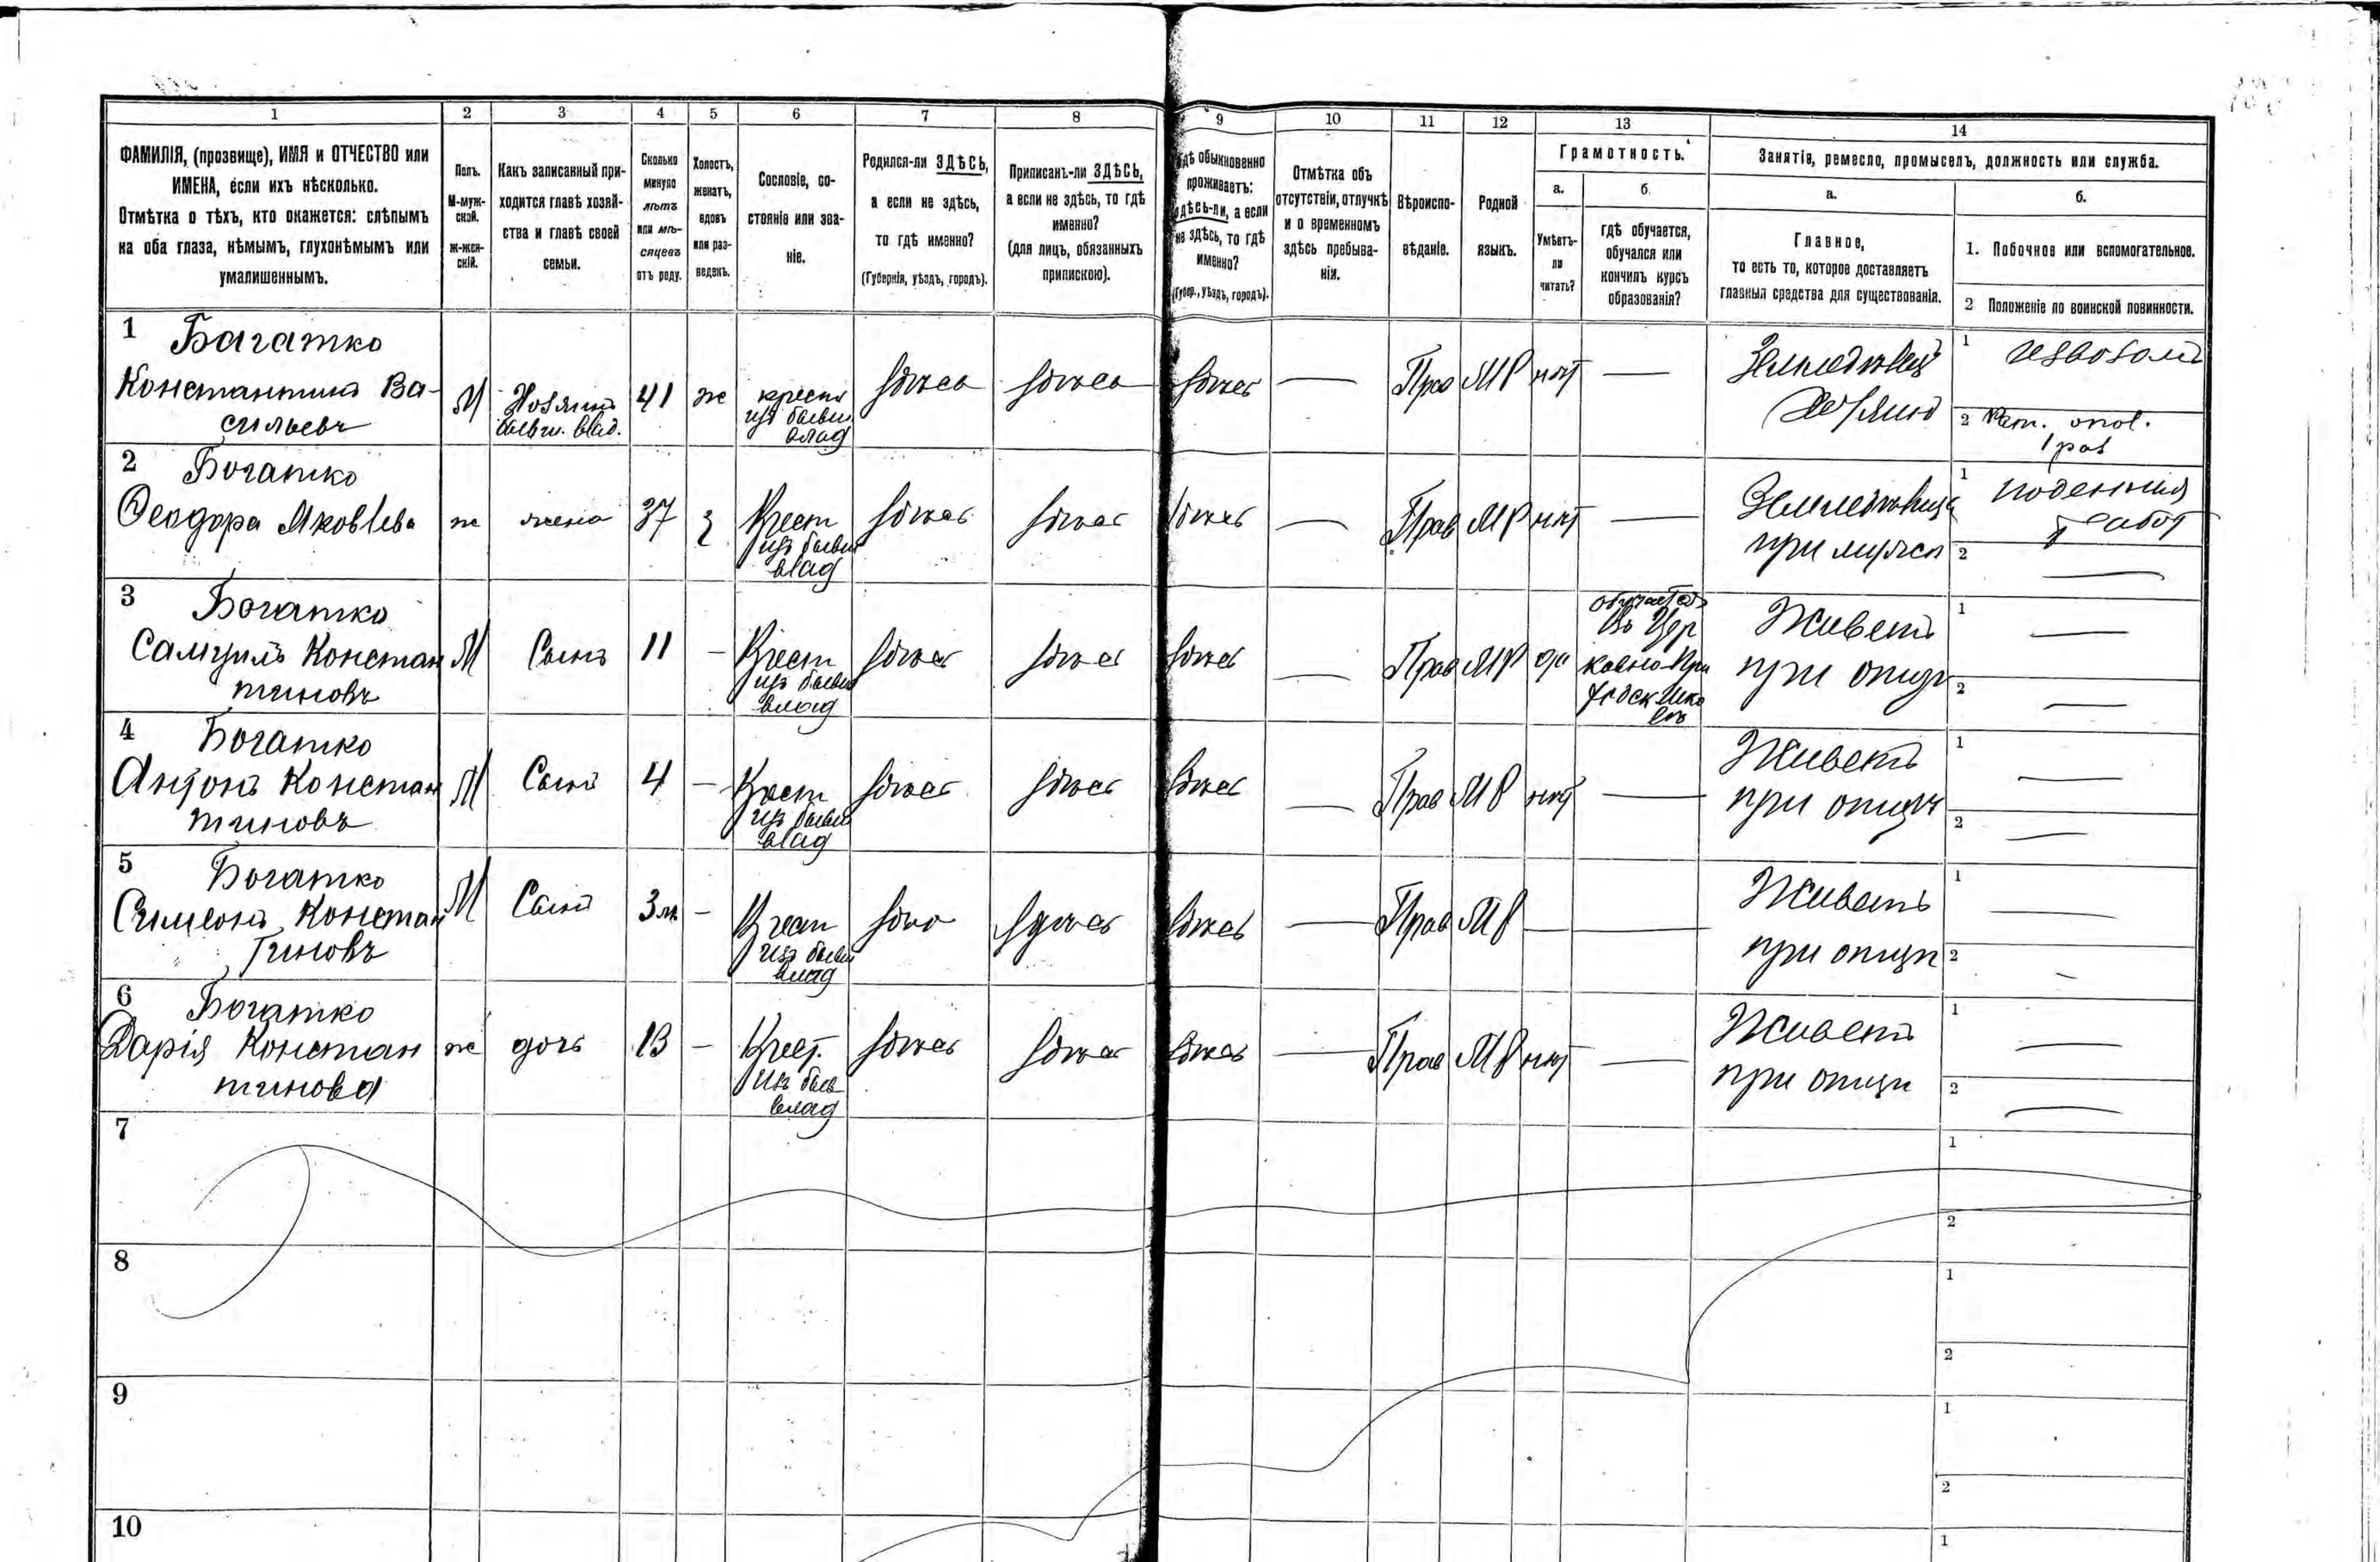 1 2 3 4 5 6 7 8 9 10 11 12 13 14
ФАМИЛІЯ, (прозвище), ИМЯ и ОТЧЕСТВО или
ИМЕНА, если ихъ нѣсколько.
Отмѣтка о тѣхъ, кто окажется: слѣпымъ
на оба глаза, нѣмымъ, глухонѣмымъ или
умалишеннымъ.
Полъ.
М-муж-
ской.
Ж-жен-
скій.
Какъ записанный при-
ходится главѣ хозяй-
ства и главѣ своей
семьи.
Сколько
минуло
лѣтъ
или мѣ-
сяцевъ
отъ роду.
Холостъ,
женатъ,
вдовъ
или раз-
веденъ.
Сословіе, со-
стояніе или зва-
ніе.
Родился-ли ЗДѢСЬ,
а если не здѣсь,
то гдѣ именно?
(Губернія, уѣздъ, городъ).
Приписанъ-ли ЗДѢСЬ,
а если не здѣсь, то гдѣ
именно?
(для лицъ, обязанныхъ
припискою).
гдѣ обыкновенно
проживаетъ:
здѣсь-ли, а если
не здѣсь, то гдѣ
именно?
(Губер., уѣздъ, городъ).
Отмѣтка объ
отсутствіи, отлучкѣ
и о временномъ
здѣсь пребыва-
ніи.
Вѣроиспо-
вѣданіе.
Родной
языкъ.
Грамотность.
а.
Умѣетъ-
ли
читать?
б.
гдѣ обучается,
обучался или
кончилъ курсъ
образованія?
Занятіе, ремесло, промыселъ, должность или служба.
а.
Главное,
то есть то, которое доставляетъ
главныя средства для существованія.
б.
1. Побочное или вспомогательное.
2 Положеніе по воинской повинности.
1 Багатко
Константинъ Ва-
сильевъ
М
Хозяинъ
бывш. влад.
41
ж
крестн
изъ бывш.
влад
здѣсь
здѣсь
здѣсь
—
Прав
МР
нѣт
—
Земледѣлецъ
Хозяинъ
1 извозомъ
2 Рат. опол.
1 раз
2 Богатко
Феодора Яковлева
ж
жена
37
з
Крест
изъ бывш
влад
здѣсь
здѣсь
здѣсь
—
Прав
МР
нѣт
—
Земледѣлица
при мужѣ
1 поденная
работ
2 —
3 Богатко
Самуилъ Констан
тиновъ
М
Сынъ
11
—
Крест
изъ бывш
влад
здѣсь
здѣсь
здѣсь
—
Прав
МР
да
обучается
въ Цер
ковно-При
ходск Шко
лѣ
Живетъ
при отцѣ
1 —
2 —
4 Богатко
Антонъ Констан
тиновъ
М
Сынъ
4
—
Крест
изъ бывш
влад
здѣсь
здѣсь
здѣсь
—
Прав
МР
нѣт
—
Живетъ
при отцѣ
1 —
2 —
5 Богатко
Симеонъ Констан
тиновъ
М
Сынъ
3 м
—
Крест
изъ бывш
влад
здѣсь
здѣсь
—
Прав
МР
—
Живетъ
при отцѣ
1 —
2 —
6 Богатко
Дарія Констан
тинова
ж
дочь
13
—
Крест.
изъ быв
влад
здѣсь
здѣсь
здѣсь
—
Прав
МР
нѣт
—
Живетъ
при отцѣ
1 —
2 —
7
1
2
8
1
2
9
1
2
10
1